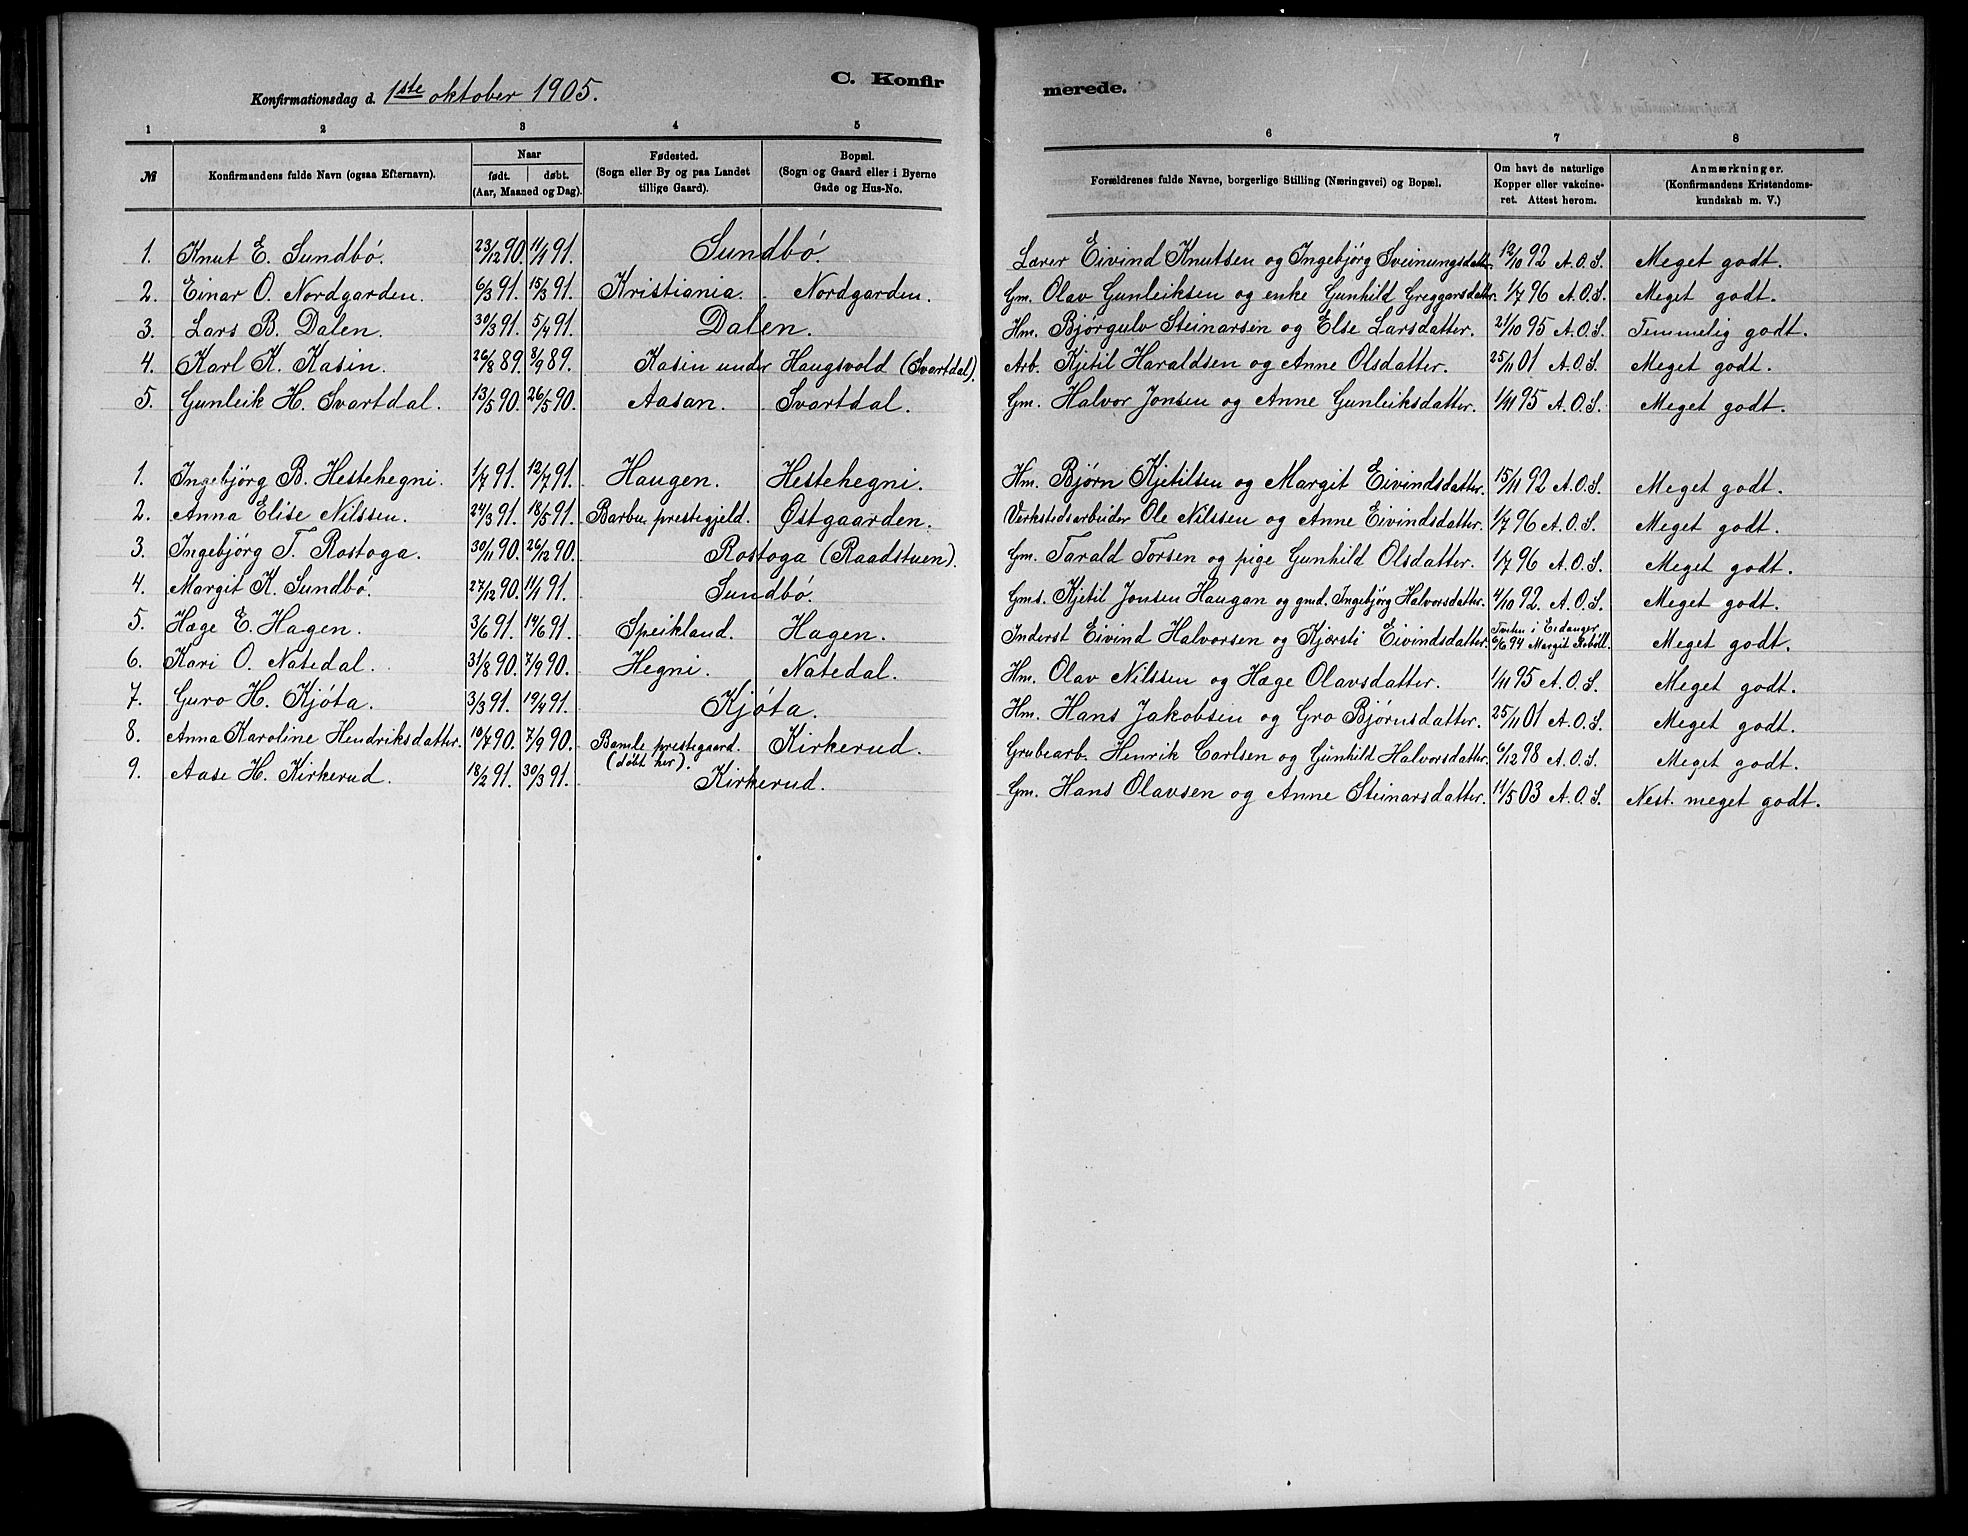 C. Konfir
merede.
Konfirmationsdag d. 1ste oktober 1905.
1 2 3 4 5 6 7 8
№ Konfirmandens fulde Navn (ogsaa Efternavn). Naar født. døbt. (Aar, Maaned og Dag). Fødested. (Sogn eller By og paa Landet tillige Gaard). Bopæl. (Sogn og Gaard eller i Byerne Gade og Hus-No. Forældrenes fulde Navne, borgerlige Stilling (Næringsvei) og Bopæl. Om havt de naturlige Kopper eller vakcineret. Attest herom. Anmærkninger. (Konfirmandens Kristendomskundskab m. V.)
1. Knut E. Sundbö. 23/12 90. 11/1 91. Sundbö. Lærer Eivind Knutsen og Ingebjörg Sveinungsdatter 12/10 92 A.O.S. Meget godt.
2. Einar O. Nordgarden. 6/3 91. 15/3 91. Kristiania. Nordgarden. Gm. Olav Gunleiksen og enke Gunhild Greggarsdatter. 1/7 96 A.O.S. Meget godt.
3. Lars B. Dalen. 30/3 91. 5/4 91. Dalen. Hm. Bjørgulv Steinarsen og Else Larsdatter. 21/10 95 A.O.S. Temmelig godt.
4. Karl K. Kasin. 26/8 89. 8/9 89. Kasin under Haugsvold (Svartdal). Arb. Kjetil Haraldsen og Anne Olsdatter. 25/11 01 A.O.S. Meget godt.
5. Gunleik H. Svartdal. 13/5 90. 26/5 90. Aasan. Svartdal. Gm. Halvor Jonsen og Anne Gunleiksdatter. 1/11 95 A.O.S. Meget godt.
1. Ingebjørg B. Hestehegni. 1/7 91. 12/7 91. Haugen. Hestehegni. Hm. Bjørn Kjetilsen og Margit Eivindsdatter. 15/11 92 A.O.S. Meget godt.
2. Anna Elise Nilssen. 24/3 91. 18/5 91. Barbu prestegjeld. Østgaarden. Verkstedsarbeider Ole Nilssen og Anne Eivindsdatter. 1/7 96 A.O.S. Meget godt.
3. Ingebjørg T. Rostoga. 30/11 90. 26/12 90. Rostoga (Raadstuen). Gm. Tarald Torsen og pige Gunhild Olsdatter. 1/7 96 A.O.S. Meget godt.
4. Margit K. Sundbö. 27/12 90. 11/1 91. Sundbö. Gms. Kjetil Jonsen Haugan og gmd. Ingebjörg Halvorsdatter. 4/10 92. A.O.S. Meget godt.
5. Hæge E. Hagen. 3/6 91. 14/6 91. Speikland. Hagen. Inderst Eivind Halvorsen og Kjersti Eivindsdatter. Tveten i Eidanger 6/6 94 Margit Meget godt.
6. Kari O. Natedal. 31/8 90. 7/9 90. Hegni. Natedal. Hm. Olav Nilssen og Hæge Olavsdatter. 1/11 95 A.O.S. Meget godt.
7. Guro H. Kjöta. 3/3 91. 19/4 91. Kjöta. Hm. Hans Jakobsen og Gro Bjørnsdatter. 25/11 01 A.O.S. Meget godt.
8. Anna Karoline Hendriksdatter. 10/7 90. 7/9 90. Bamle prestegaard. (döbt her). Kirkerud. Grubearb. Henrik Carlsen og Gunhild Halvorsdatter. 6/12 98 A.O.S. Meget godt.
9. Aase H. Kirkerud. 18/2 91. 30/3 91. Kirkerud. Gm. Hans Olavsen og Anne Steinarsdatter. 11/5 03 A.O.S. Nest. meget godt.